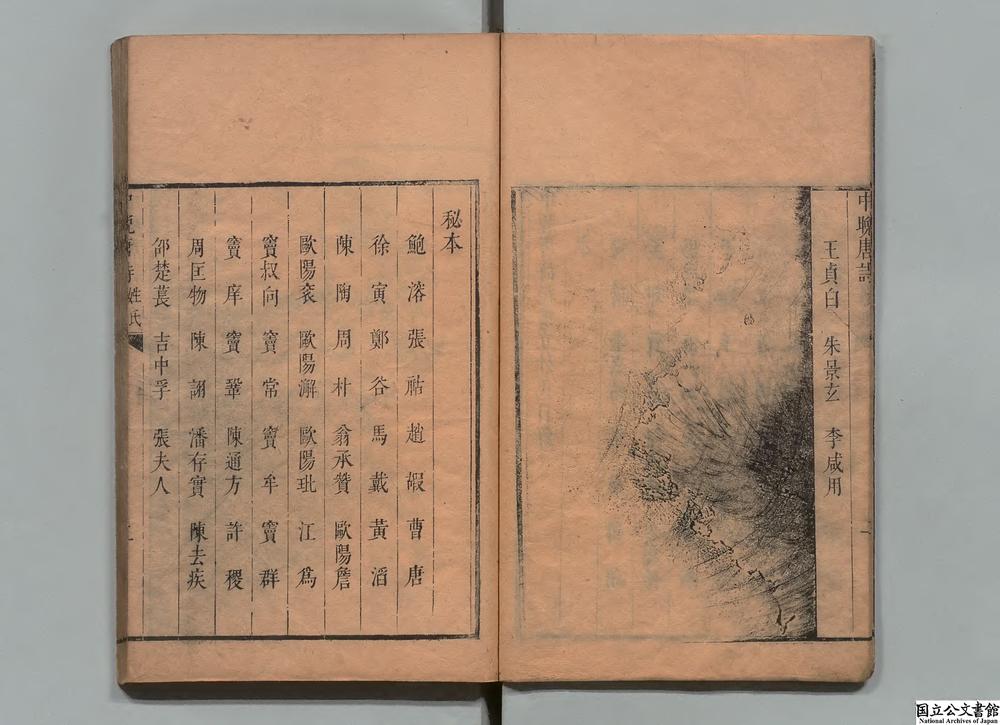 中晩唐詩
王貞白 朱景玄 李咸用
一
秘本
鮑溶 張祜 趙嘏 曹唐
徐寅 鄭谷 馬戴 黃滔
陳陶 周朴 翁承贊 歐陽詹
歐陽袞 歐陽澥 歐陽玭 江爲
竇叔向 竇常 竇牟 竇群
竇庠 竇鞏 陳通方 許稷
周匡物 陳詡 潘存實 陳去疾
邵楚萇 吉中孚 張夫人
中晚唐詩姓氏
国立公文書館
National Archives of Japan